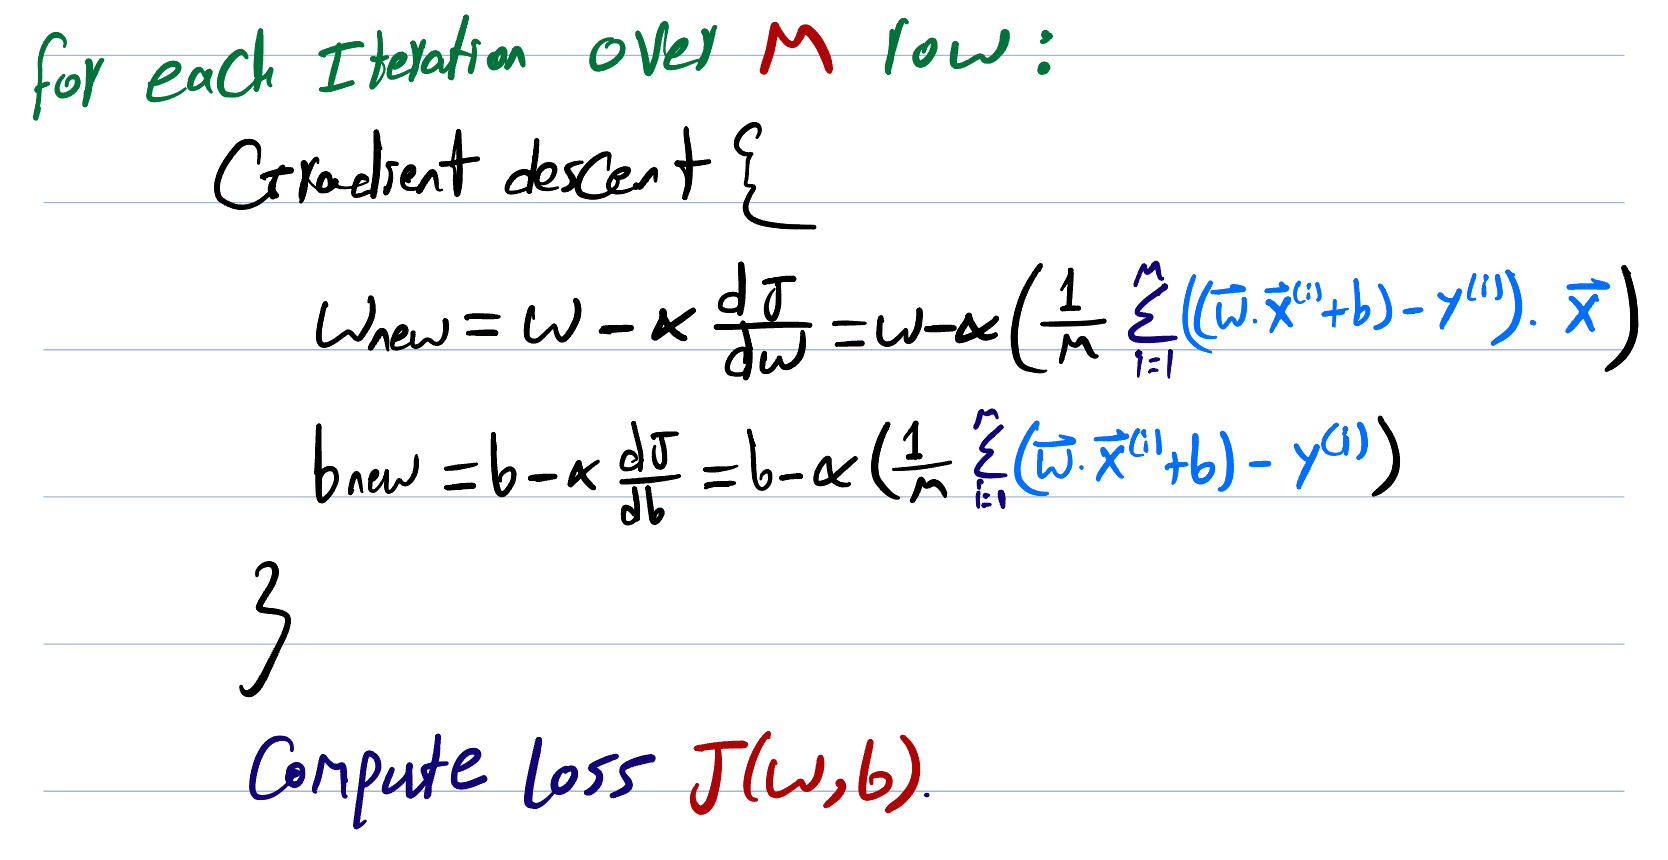 for each Iteration over M row:
Gradient descent {
w_new = w - α dJ/dw = w - α (1/M Σ_{i=1}^{M} ((w⃗ . x⃗^(i) + b) - y^(i)) . x⃗)
b_new = b - α dJ/db = b - α (1/M Σ_{i=1}^{M} (w⃗ . x⃗^(i) + b) - y^(i))
}
Compute loss J(w,b).